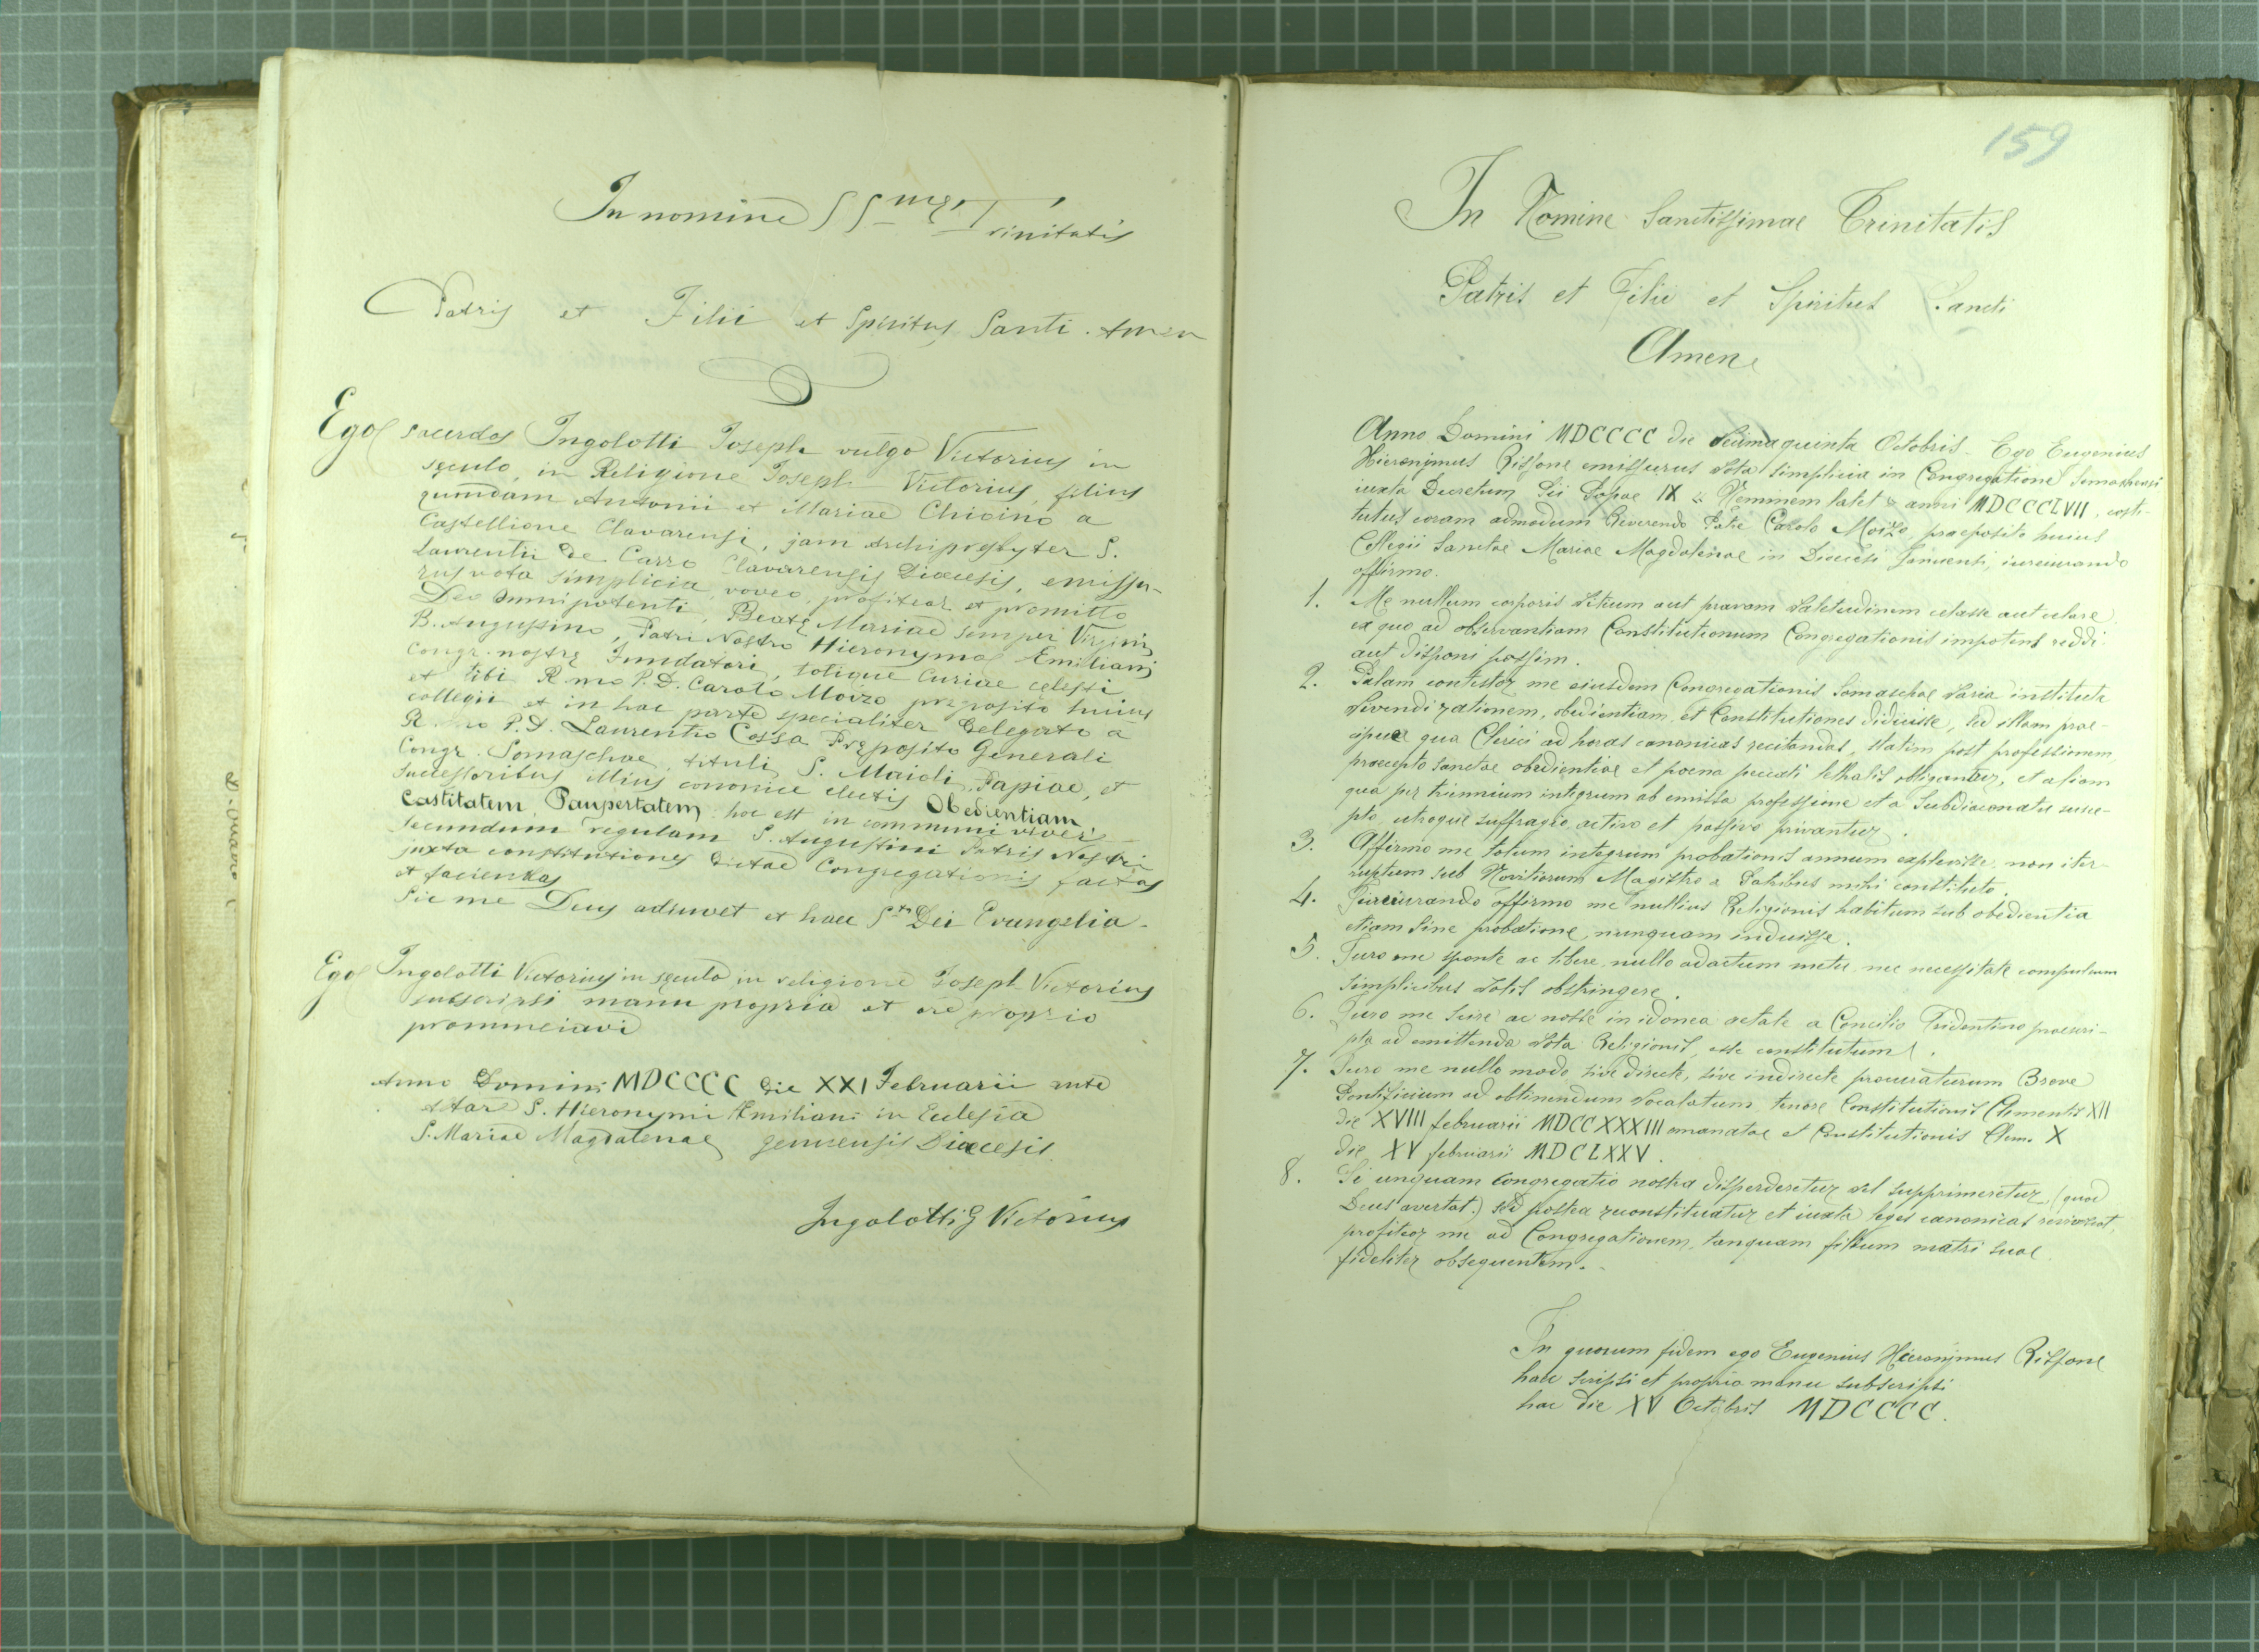 In nomine SSmæ Trinitatis
Patris et Filii et Spiritus Santi. Amen
Ego sacerdos Ingolotti Joseph vulgo Victorius in
sęculo, in Religione Joseph Victorius, filius
quondam Antonii et Mariae Chicino a
Castellione Clavarensi, jam Archipresbyter S.
Laurentii de Carro Clavarensis Diœcesis, emissu-
rus vota simplicia, voveo, profiteor et promitto
Deo Omnipotenti, Beatę Mariae semper Virgini,
B. Augustino, Patri Nostro Hieronymo Emiliani
Congr. nostrę Fundatori, totique Curiae cęlesti
et tibi Rmo P. D. Carolo Moizo pręposito huius
collegii et in hac parte specialiter delegato a
Rmo P. D. Laurentio Cossa Pręposito Generali
Congr. Somaschae, tituli S. Maioli Papiae, et
successoribus illius canonice electis Obedientiam,
Castitatem, Paupertatem, hoc est in communi vivere
secundum regulam S. Augustini Patris Nostri
juxta constitutiones dictae Congregationis factas
et faciendas
Sic me Deus adiuvet et haec Sta Dei Evangelia.
Ego Ingolotti Victorius in sęculo, in religione Joseph Victorius
subscripsi manu propria et ore proprio
pronunciavi
Anno Domini MDCCCC die XXI Februarii ante
Altare S. Hieronymi Æmiliani in Eclesia
S. Mariae Magdalenae genuensis Diœcesis.
Ingolotti G Victorius
159
In Nomine Sanctissimae Trinitatis
Patris et Filii et Spiritus Sancti
Amen
Anno Domini MDCCCC die decimaquinta Octobris - Ego Eugenius
Hieronjmus Rissone emissurus vota simplicia in Congregatione Somashensi
iuxta Decretum Pii Papae IX « Neminem latet » anni MDCCCLVII, costi-
tutus coram admodum Reverendo Patre Carolo Moizo, praeposito huius
Collegii Sanctae Mariae Magdalenae in Diœcesi Januensi, iureiurando
affirmo.
1. Me nullum corporis vitium aut pravam valetudinem celasse aut celare
ex quo ad observantiam Constitutionum Congregationis impotens reddi
aut disponi possim.
2. Palam contestor me eiusdem Congregationis Somaschae varia instituta
vivendi rationem, obedientiam et Constitutiones didicisse, sed illam prae-
cipue qua Clerici ad horas canonicas recitandas, statim post professionem
praecepto sanctae obedientiae et poena peccati lethalis obligantur, et aliam
qua per triennium integrum ab emissa professione et a Subdiaconatu susce-
pto, utroque suffragio activo et passivo privantur.
3. Affirmo me totum integrum probationis annum explevisse, non iter-
ruptum sub Novitiorum Magistro a Patribus mihi constituto.
4. Jureiurando affirmo me nullius Religionis habitum sub obedientia
etiam sine probatione nunquam induisse.
5. Juro me sponte ac libere, nullo adactum metu, nec necessitate compulsum
simplicibus votis obstringere.
6. Juro me scire ac nosse in idonea aetate a Concilio Tridentino praescri-
pta ad emittenda vota Religionis, esse constitutum.
7. Juro me nullo modo sive directe, sive indirecte procuraturum Breve
Pontificium ad obtinendum vocalatum, tenore Constitutionis Clementis XII
die XVIII februarii MDCCXXXIII emanatae et Constitutionis Clem. X
die XV februarii MDCLXXV.
8. Si unquam congregatio nostra disperderetur vel supprimeretur (quod
Deus avertat) sed postea reconstituatur et iuxta leges canonicas reviviscat
profiteor me ad Congregationem, tanquam filium matri suae
fideliter obsequentem.
In quorum fidem ego Eugenius Hieronjmus Rissone
haec scripsi et propria manu subscripsi
hac die XV Octobris MDCCCC.